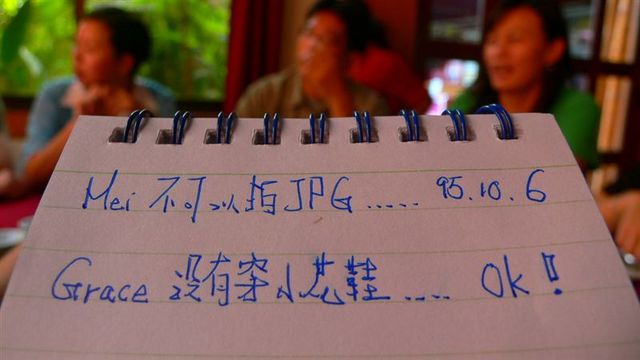 Mei 不可以拍JPG..... 95.10.6
Grace 没有穿小花鞋.... Ok!